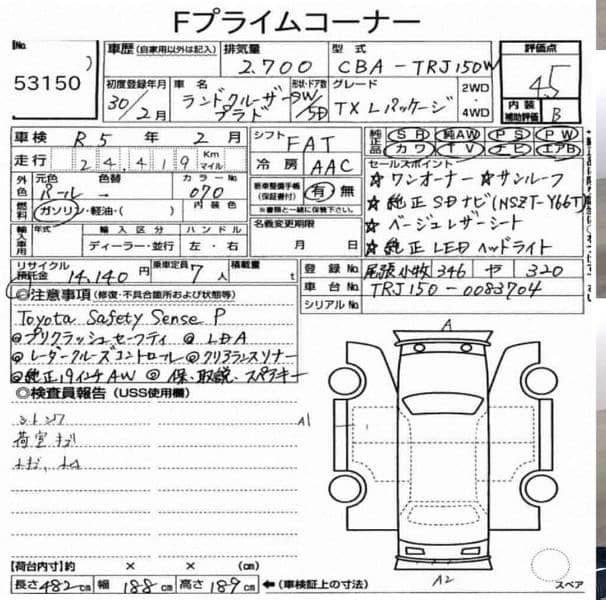 Fプライムコーナー
No.
53150
車歴 (自家用以外は記入)
排気量
2.700
型式
CBA-TRJ150W
評価点
4.5
内装
補助評価 B
初度登録年月
30/2月
車名
ランドクルーザー
プラド
形状・ドア数
SW/5D
グレード
TX Lパッケージ
2WD
4WD
車検 R5年 2月
シフト FAT
純正品 SR 純AW PS PW
カワ TV ナビ エアB
走行 24,419 Km マイル
冷房 AAC
セールスポイント
外色 元色 色替 カラーNo.
パール 070
新車整備手帳
(保証書付)
有 無
※書類と一緒に保管下さい。
☆ワンオーナー ☆サンルーフ
☆純正SDナビ(NSZT-Y66T)
☆ベージュレザーシート
☆純正LEDヘッドライト
燃料 ガソリン・軽油・( ) 内装色
輸入車用 年式 輸入区分 ハンドル
ディーラー・並行 左・右
名義変更期限
月 日
リサイクル
預託金 14,140円
乗車定員 7人
積載量 t
登録No. 尾張小牧 346 320
車台No. TRJ150-0083704
シリアルNo.
◎注意事項 (修復・不具合箇所および状態等)
Toyota Safety Sense P
◎プリクラッシュセーフティ ◎LDA
◎レーダークルーズコントロール ◎クリアランスソナー
◎純正19インチAW ◎保・取説・スペアキー
◎検査員報告 (USS使用欄)
荷室キズ
A
A1
A2
スペア
【荷台内寸】約 × × (cm)
長さ 482cm 幅 188cm 高さ 189cm ←(車検証上の寸法)